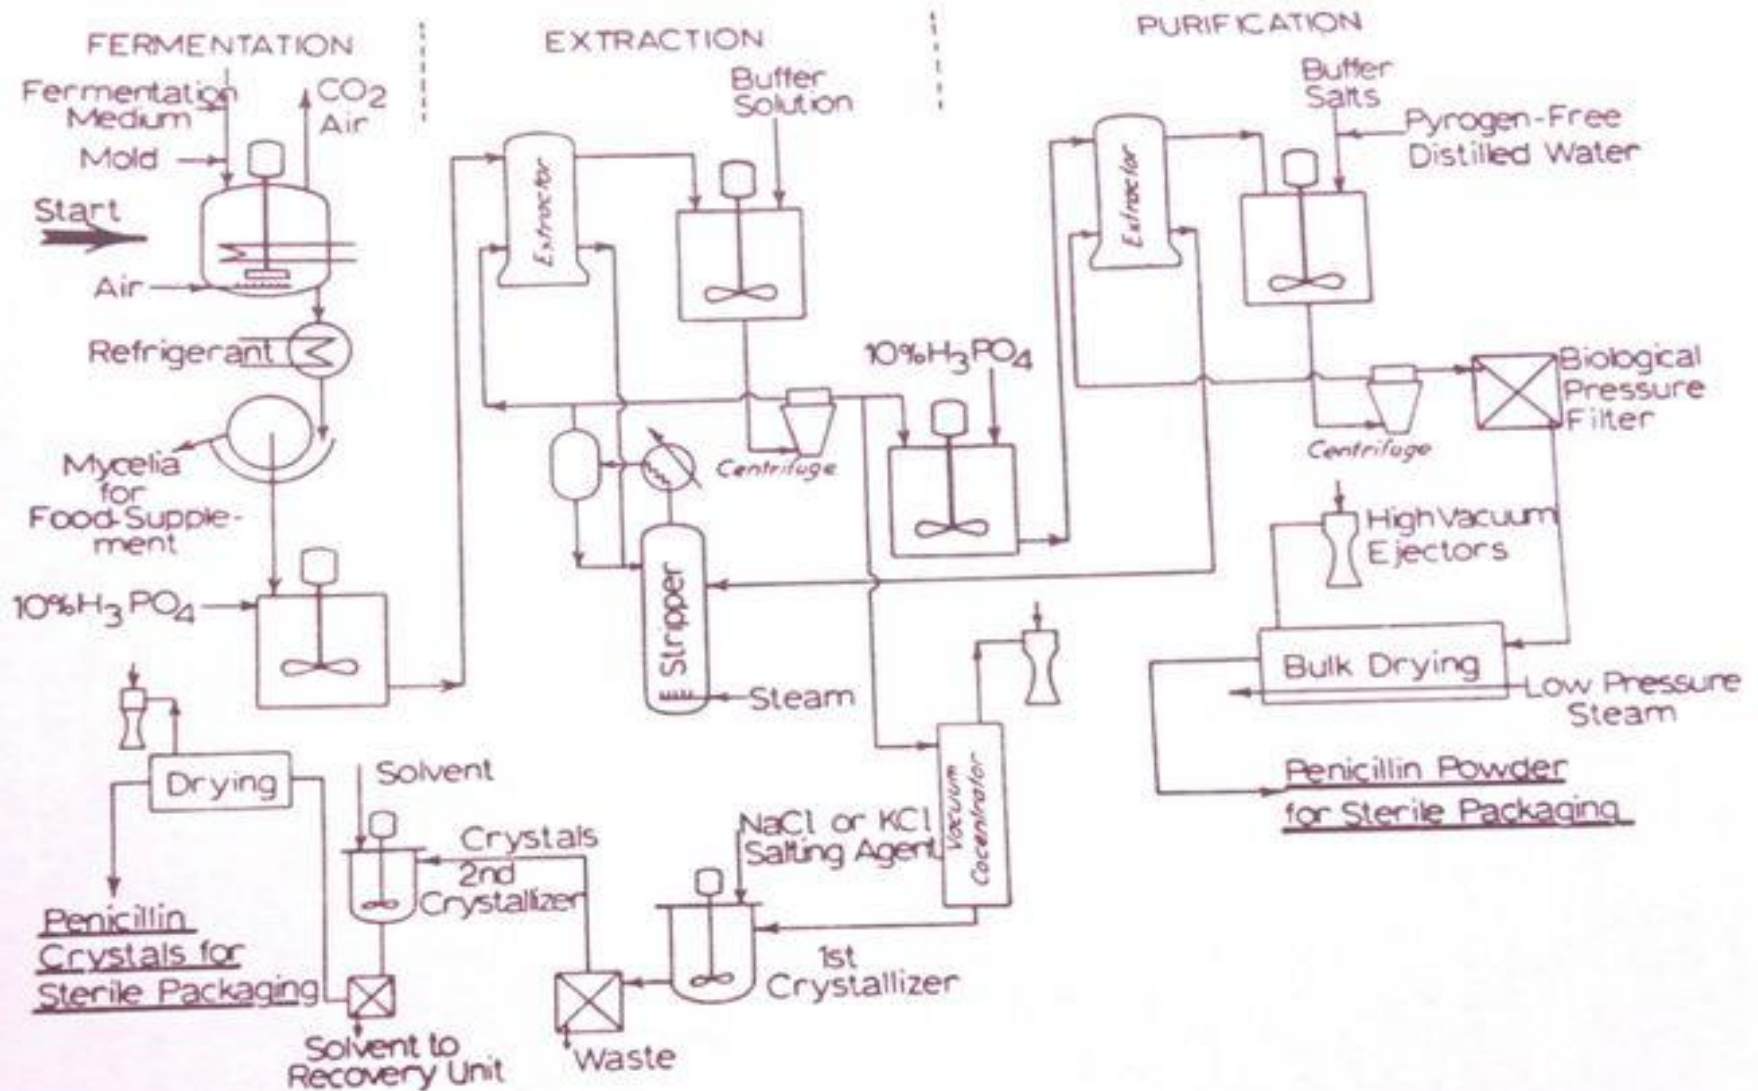 FERMENTATION
EXTRACTION
PURIFICATION
Fermentation
Medium
Mold
CO2
Air
Start
Air
Refrigerant
Mycelia
for
Food-Supple-
ment
10%H3PO4
Extractor
Buffer
Solution
Centrifuge
Stripper
Steam
10%H3PO4
Extractor
Buffer
Salts
Pyrogen-Free
Distilled Water
Centrifuge
Biological
Pressure
Filter
High Vacuum
Ejectors
Bulk Drying
Low Pressure
Steam
Penicillin Powder
for Sterile Packaging
Vacuum
Cocentrator
NaCl or KCl
Salting Agent
1st
Crystallizer
Waste
Crystals
2nd
Crystallizer
Solvent
Solvent to
Recovery Unit
Drying
Penicillin
Crystals for
Sterile Packaging